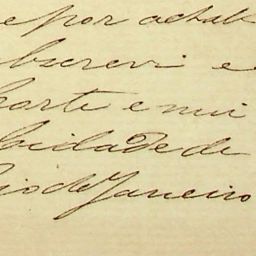 e por achal
bscrevi e
parte e mui
Cidade de
Rio de Janeiro